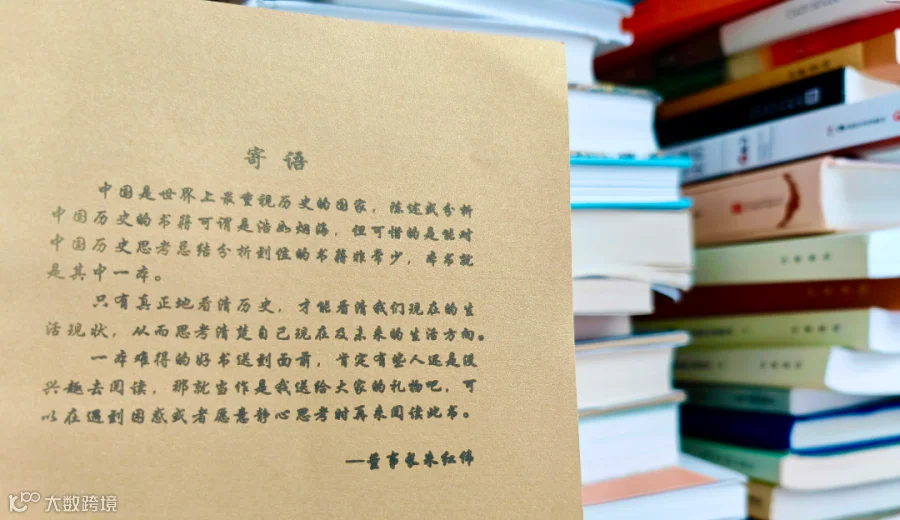 寄语
中国是世界上最重视历史的国家，陈述或分析
中国历史的书籍可谓是浩如烟海，但可惜的是能对
中国历史思考总结分析到位的书籍非常少，本书就
是其中一本。
只有真正地看清历史，才能看清我们现在的生
活现状，从而思考清楚自己现在及未来的生活方向。
一本难得的好书送到面前，肯定有些人还是没
兴趣去阅读，那就当作是我送给大家的礼物吧，可
以在遇到困惑或者愿意静心思考时再来阅读此书。
—董事长朱红伟
大数跨境